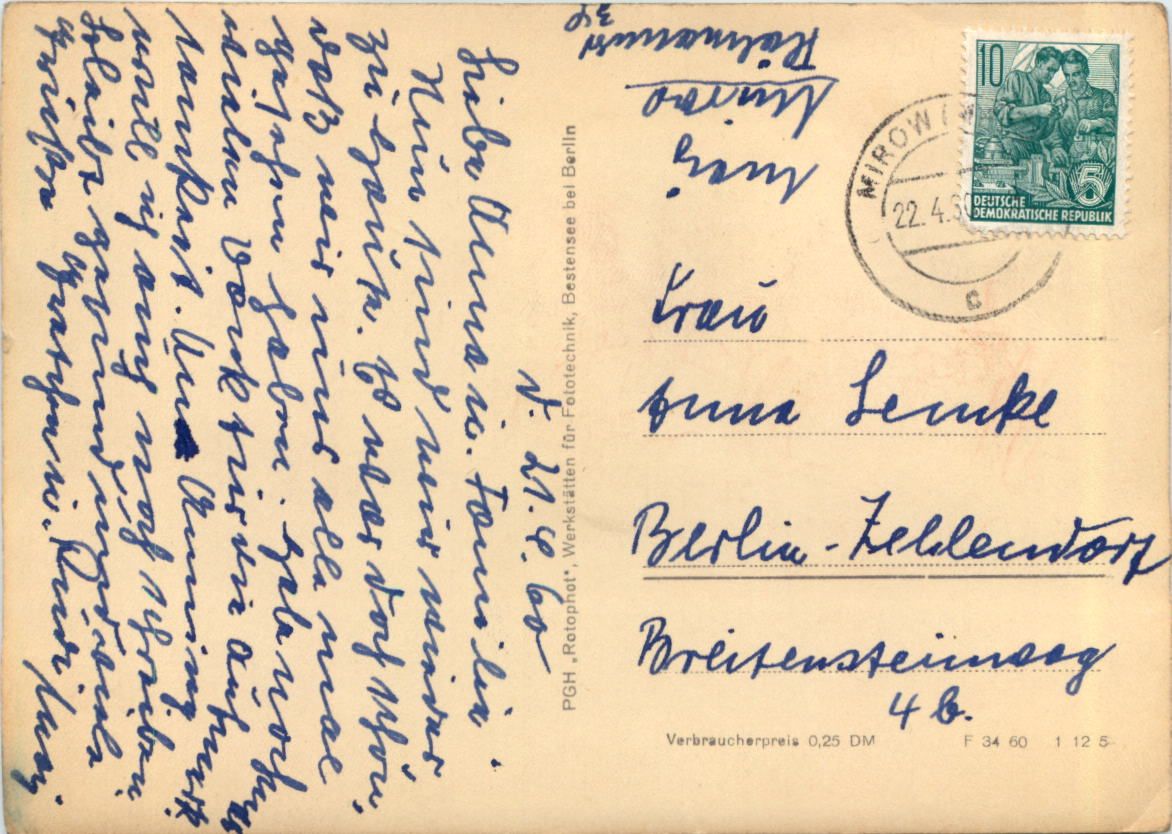 d. 21.4.60
Liebe Anna u. Familie.
Nun sind wir wieder
zu Hause. Es war doch schön,
daß wir uns alle mal
gesehen haben. Habe nochmals
vielen Dank für die Aufmerk
samkeit. 
will ich auch noch schreiben.
Bleibt gesund und viele
Grüße Gretchen u.
PGH „Rotophot", Werkstätten für Fototechnik, Bestensee bei Berlin
Mirow
MIROW (
22.4.60
c
10
5
DEUTSCHE
DEMOKRATISCHE REPUBLIK
Frau
Anna Lemke
Berlin-Zehlendorf
Breitensteinweg
4 b.
Verbraucherpreis 0,25 DM F 34 60 1 12 5